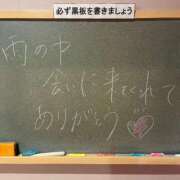 必ず黒板を書きましょう
雨の中
会いに来てくれて
ありがとう